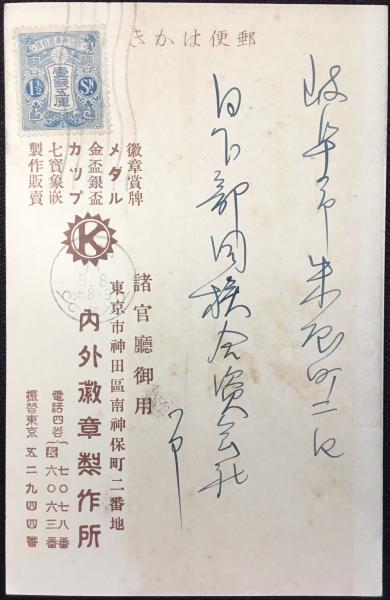 郵便はかき
岐阜市朱
日下部同族合資会社
徽章賞牌
メダル
金盃銀盃
カツプ
七寳象嵌
製作販賣
壹錢五厘
1½ Sn
K
9.8
諸官廳御用
東京市神田區南神保町二番地
内外徽章製作所
電話四谷 長 七〇七八番
六〇六三番
振替東京 五二九四四番